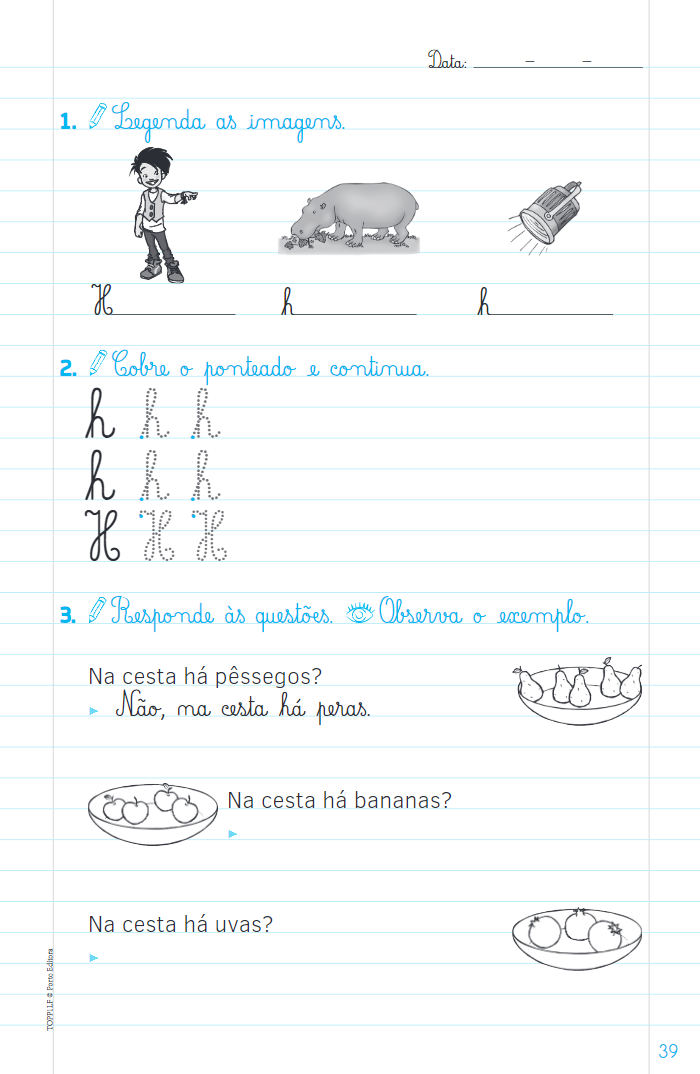 Data: ____ - ____ - ____
1. Legenda as imagens.
H h h
2. Cobre o ponteado e continua.
h h h
h h h
H H H
3. Responde às questões. Observa o exemplo.
Na cesta há pêssegos?
Não, na cesta há peras.
Na cesta há bananas?
Na cesta há uvas?
TOPP1LF © Porto Editora
39